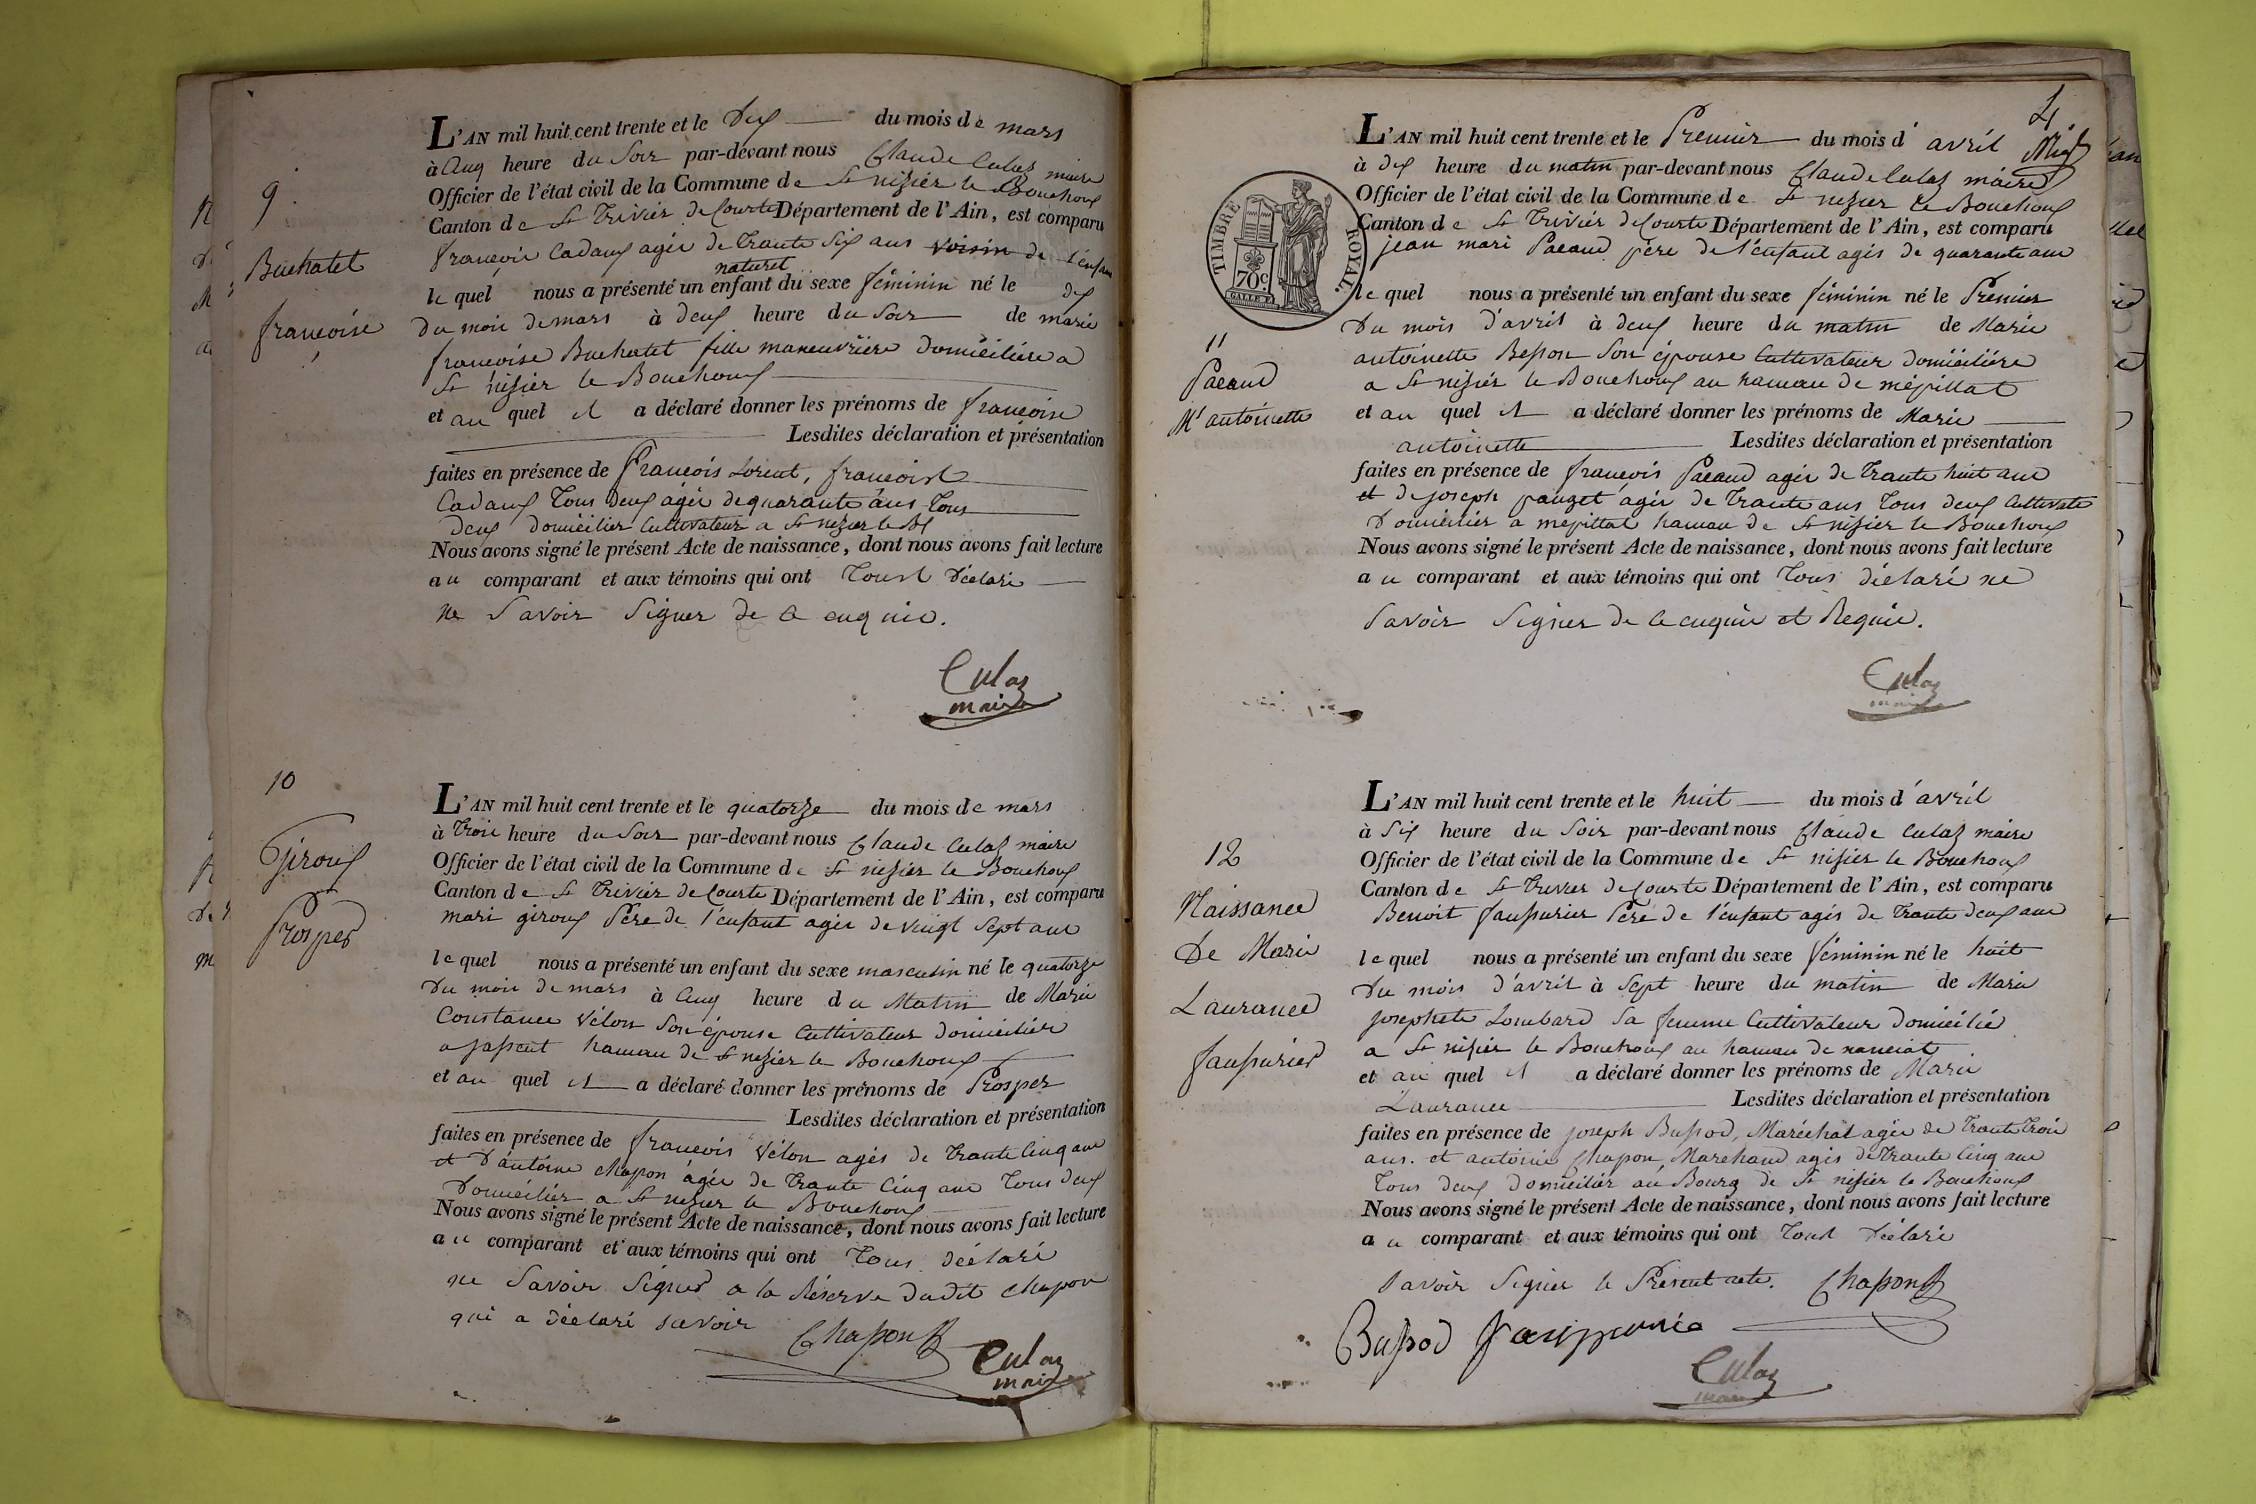 9.
Buchatet
francoise
L'AN mil huit cent trente et le dix du mois de mars
à cinq heure du soir par-devant nous Claude Culaz maire
Officier de l'état civil de la Commune de St nizier le Bouchoux
Canton de St Trivier de Courte Département de l'Ain, est comparu
francois Cadaux agée de trante six ans voisin de l'enfant
naturel
le quel nous a présenté un enfant du sexe féminin né le dix
du mois de mars à deux heure du soir de marie
francoise Buchatet fille maneuvrière domicilière a
St nizier le Bouchoux
et au quel il a déclaré donner les prénoms de francoise
Lesdites déclaration et présentation
faites en présence de francois Lorent, francoist
Cadaux tous deux agée de quarante ans tous
deux domicilier Cultivateur a St nizier le Bx
Nous avons signé le présent Acte de naissance, dont nous avons fait lecture
au comparant et aux témoins qui ont toust déclaré
ne savoir signer de ce enquie.
Culaz
maire
10
Giroux
Prosper
L'AN mil huit cent trente et le quatorze du mois de mars
à trois heure du soir par-devant nous Claude Culaz maire
Officier de l'état civil de la Commune de St nizier le Bouchoux
Canton de St Trivier de Courte Département de l'Ain, est comparu
mari giroux Père de l'enfant agée de vingt sept ans
le quel nous a présenté un enfant du sexe masculin né le quatorze
du mois de mars à cinq heure du Matin de Marie
Constance vélon son épouse Cultivateur domicilièr
a hamau de St nizier le Bouchoux
et au quel il a déclaré donner les prénoms de Prosper
Lesdites déclaration et présentation
faites en présence de francois vélon agés de trante cinq ans
et d'antoine chapon agée de trante cinq ans tous deux
Domicilièr a St nizier le Bouchoux
Nous avons signé le présent Acte de naissance, dont nous avons fait lecture
au comparant et aux témoins qui ont tous déclaré
ne savoir signer a la Réserve dudit chapon
qui a déclaré savoir
Chapon
Culaz
maire
4
TIMBRE ROYAL.
70c
11
Pacaud
Me antoinette
L'AN mil huit cent trente et le Premier du mois d'avril
à dix heure du matin par-devant nous Claude Culaz maire
Officier de l'état civil de la Commune de St nizier le Bouchoux
Canton de St Trivier de Courte Département de l'Ain, est comparu
jean mari Pacaud père de l'enfant agés de quarante ans
le quel nous a présenté un enfant du sexe féminin né le Premier
du mois d'avril à deux heure du matin de Marie
antoinette Besson son épouse Cultivateur domicilière
a St nizier le Bouchoux au hamau de mépillat
et au quel il a déclaré donner les prénoms de Marie
antoinette Lesdites déclaration et présentation
faites en présence de francois Pacaud agée de trante huit ans
et de joseph pauget agée de trante ans tous deux Cultivate
Domicilier a mépillat hamau de St nizier le Bouchoux
Nous avons signé le présent Acte de naissance, dont nous avons fait lecture
au comparant et aux témoins qui ont tous déclaré ne
savoir signer de ce enquie et Requie.
Culaz
maire
12
Naissance
De Marie
Laurance
Jausurier
L'AN mil huit cent trente et le huit du mois d'avril
à six heure du soir par-devant nous Claude Culaz maire
Officier de l'état civil de la Commune de St nizier le Bouchoux
Canton de St Trivier de Courte Département de l'Ain, est comparu
Benoit Père de l'enfant agés de trante deux ans
le quel nous a présenté un enfant du sexe féminin né le huit
du mois d'avril à sept heure du matin de Marie
josephete Lombard sa femme Cultivateur domicilié
a St nizier le Bouchoux au hamau de nanciat
et au quel il a déclaré donner les prénoms de Marie
Laurance Lesdites déclaration et présentation
faites en présence de joseph Bussod, Maréchal agée de trante trois
ans. et antoine Chapon, Marchand agés de trante cinq ans
tous deux domicilièr au Bourg de St nizier le Bouchoux
Nous avons signé le présent Acte de naissance, dont nous avons fait lecture
au comparant et aux témoins qui ont toust déclaré
savoir signier le Présent acte. Chapon
Bussod
Culaz
maire